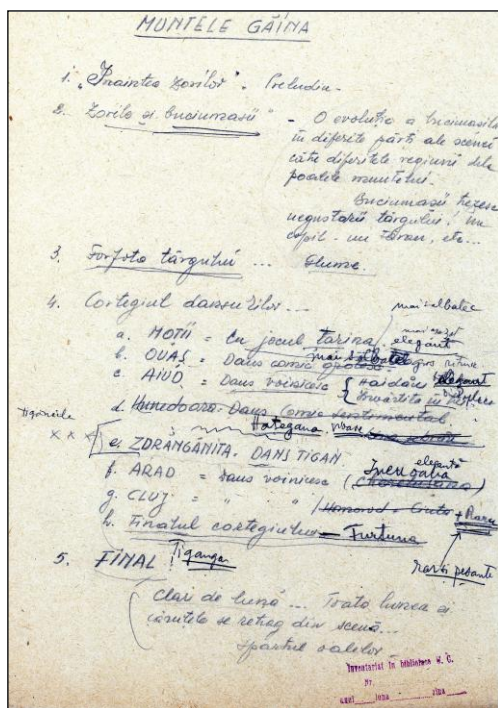 MUNTELE GĂINA
1. "Înaintea zorilor". Preludiu.
2. Zorile și buciumașii" - O evoluție a buciumașilor
în diferite părți ale scenei
către diferitele regiuni dela
poalele muntelui.
Buciumașii trezesc
negustorii târgului! un
copil - un țăran, etc...
3. Forfota târgului ... Glume.
4. Cortegiul dansurilor...
mai sălbatec
a. MOȚII = Cu jocul țarina elegant
b. OUAȘ = Dans comic
c. AIUD = Dans voinicesc Haidău elegant
Învârtita
d. Hunedoara = Dans comic sentimental
Hațegana
x x x
e. ZDRANGĂNIȚA. DANS ȚIGAN
f. ARAD = dans voinicesc elegantă
g. CLUJ = " "
h. Finalul cortegiului = Furtuna
5. FINAL
Clar de lună ... Toată lumea și
căruțele se retrag din scenă...
Spartul
Inventariat în biblioteca U. C.
Nr.
anul luna ziua